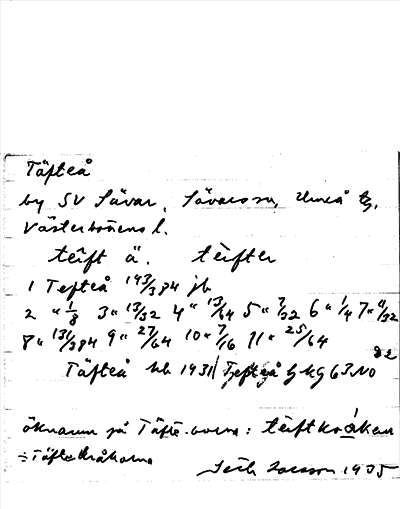 Täfteå
by SV Sävar, Sävars sn, Umeå tg,
Västerbottens l.
tèift ä. tèifter
1 Tefteå 143/384 jb
2 " 1/8 3 " 13/32 4 " 13/64 5 " 7/32 6 " 1/4 7 " 11/32
8 " 131/384 9 " 27/64 10 " 7/16 11 " 25/64
Täfteå 1931 Tefteå GKG 63 NO
82
öknamn på Täfte-borna: tèiftkråken
= Täftekråkorna
1935